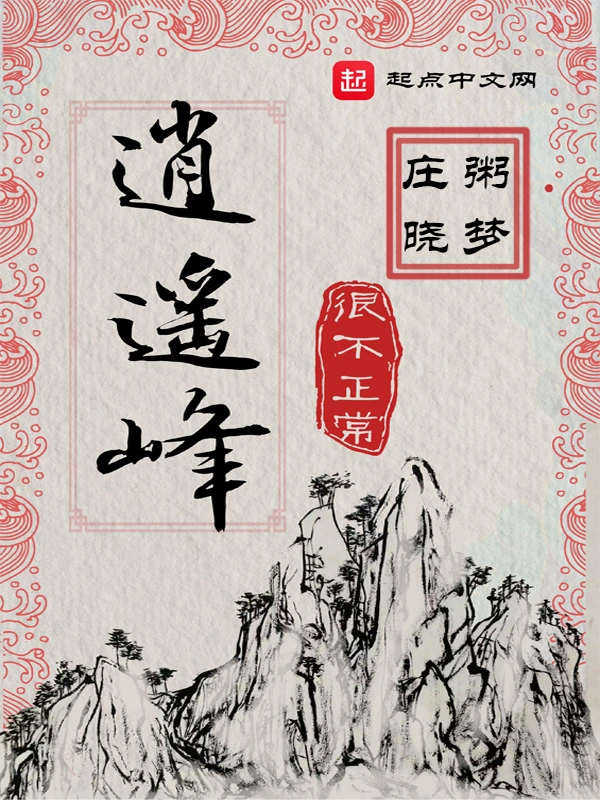 起 起点中文网
逍遥峰
庄粥
晓梦
很不正常